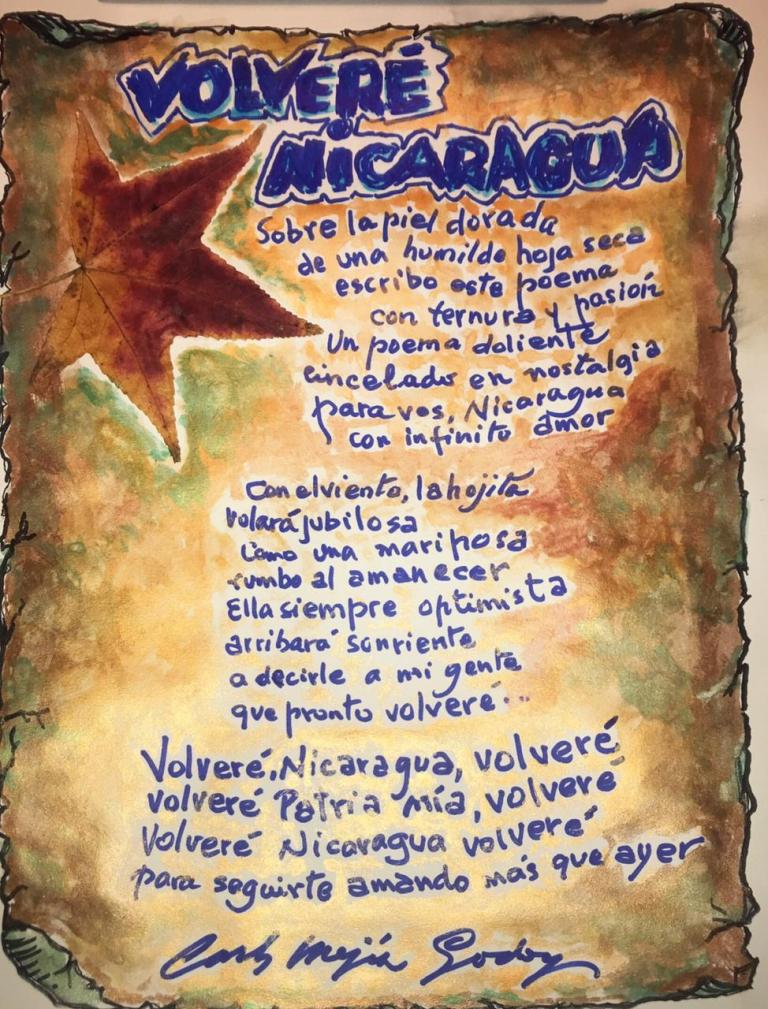 VOLVERÉ
NICARAGUA
Sobre la piel dorada
de una humilde hoja seca
escribo este poema
con ternura y pasión
Un poema doliente
cincelado en nostalgia
para vos, Nicaragua
con infinito amor
Con el viento, la hojita
volará jubilosa
como una mariposa
rumbo al amanecer
Ella siempre optimista
arribará sonriente
a decirle a mi gente
que pronto volveré...
Volveré, Nicaragua, volveré
volveré Patria mía, volveré
Volveré Nicaragua volveré
para seguirte amando más que ayer
Carlos Mejía Godoy